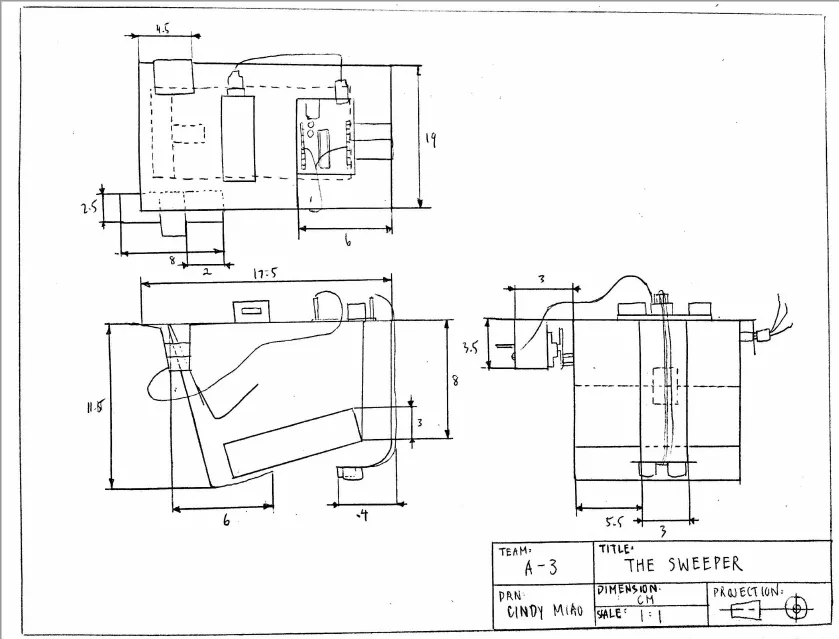 4.5
19
2.5
6
8
2
17.5
3
3.5
11.5
8
3
6
.4
5.5
3
TEAM:
A-3
TITLE:
THE SWEEPER
DRN:
CINDY MIAO
DIMENSION:
CM
SCALE: 1:1
PROJECTION: